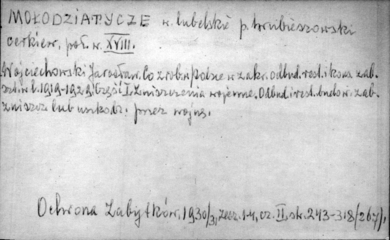 MOŁODZIATYCZE w. lubelskie p. hrubieszowski
cerkiew, poł. w. XVIII.
Wojciechowski Jarosław. Co zrobiono w Polsce w zakr. odbud. rest. i konserw. zab.
szt. w l. 1919-1929. Część I. Zniszczenia wojenne. Odbud. i rest. budow. zab.
zniszcz. lub uszkodz. przez wojnę.
Ochrona Zabytków, 1930/31, zesz. 1-4, cz. II, str. 243-318 /267/.